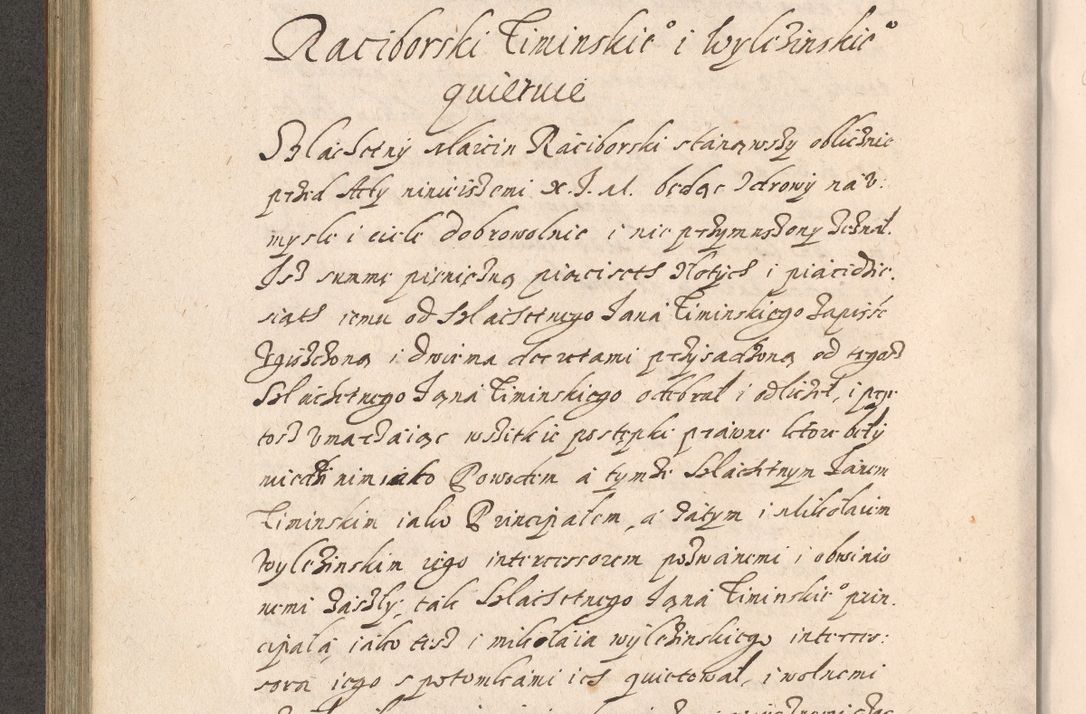 Raciborski Timinskie° i Wylczinskie°
quietuie
Szlachetny Marcin Raciborski stanąwszy oblicznie
przed Akty ninieiszemi x. J. M. będąc zdrowy na v:
mysle i ciele dobrowolnie i nie przymuszony zeznał.
Isz summę pieniężną pięciset złotych i pięcidzie:
siąth iemu od szlachetnego Jana Timinskiego zapisem
ziszczoną i dwiema decretami przysądzoną od tegosz
Szlachetnego Jana Timinskiego odebrał i odliczył, i prze:
tosz vmarzaiąc wszitkie postępki prawne ktore były
miedzi nim iako Powodem a tymże Szlachetnym Janem
Timinskim iako Principałem, a zatym i Mikołaiem
Wylczinskim iego intercessorem pozwanemi i obwinio
nemi zaszły, tak Szlachetnego Jana Timinskie° prin:
cipała, iako tesz i mikołaia wylczinskiego interces:
sora iego s potomkami ich quietował, i wolnemi